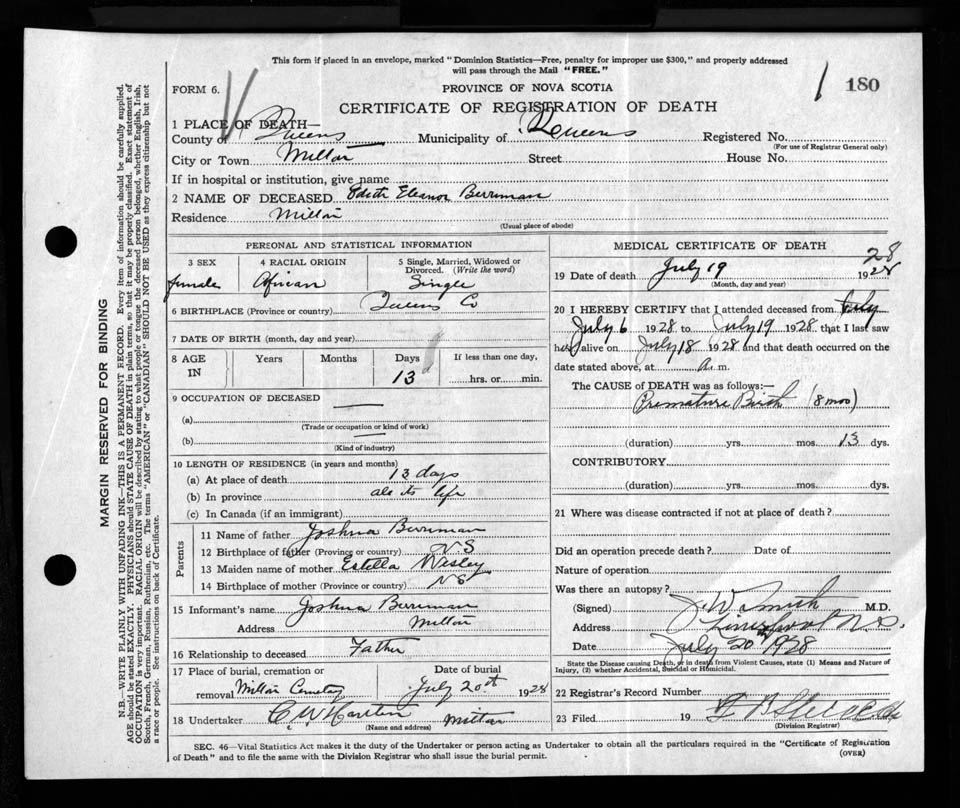 This form if placed in an envelope, marked "Dominion Statistics—Free, penalty for improper use $300," and properly addressed
will pass through the Mail "FREE."
FORM 6.
PROVINCE OF NOVA SCOTIA
1 180
CERTIFICATE OF REGISTRATION OF DEATH
1 PLACE OF DEATH—
County of Queens Municipality of Queens Registered No.
(For use of Registrar General only)
City or Town Milton Street House No.
If in hospital or institution, give name
2 NAME OF DECEASED Edith Eleanor Berriman
Residence Milton
(Usual place of abode)
PERSONAL AND STATISTICAL INFORMATION
3 SEX 4 RACIAL ORIGIN 5 Single, Married, Widowed or Divorced. (Write the word)
female African Single
6 BIRTHPLACE (Province or country) Queens Co
7 DATE OF BIRTH (month, day and year)
8 AGE IN Years Months Days If less than one day,
13 hrs. or min.
9 OCCUPATION OF DECEASED
(a)
(Trade or occupation or kind of work)
(b)
(Kind of industry)
10 LENGTH OF RESIDENCE (in years and months)
(a) At place of death 13 days
(b) In province all its life
(c) In Canada (if an immigrant)
Parents
11 Name of father Joshua Berriman
12 Birthplace of father (Province or country) N.S
13 Maiden name of mother Estella Wesley
14 Birthplace of mother (Province or country) NS
15 Informant's name Joshua Berriman
Address Milton
16 Relationship to deceased Father
17 Place of burial, cremation or Date of burial
removal Milton Cemetery July 20th 1928
18 Undertaker C W Milton
(Name and address)
MEDICAL CERTIFICATE OF DEATH
19 Date of death July 19 1928 28
(Month, day and year)
20 I HEREBY CERTIFY that I attended deceased from July
July 6 1928 to July 19 1928 that I last saw
her alive on July 18 1928 and that death occurred on the
date stated above, at a. m.
The CAUSE OF DEATH was as follows:—
Premature Birth (8 mos)
(duration) yrs. mos. 13 dys.
CONTRIBUTORY
(duration) yrs. mos. dys.
21 Where was disease contracted if not at place of death?
Did an operation precede death? Date of
Nature of operation
Was there an autopsy?
(Signed) J W Smith M.D.
Address Liverpool N.S.
Date July 20th 1928
State the Disease causing Death, or in death from Violent Causes, state (1) Means and Nature of
Injury, (2) whether Accidental, Suicidal or Homicidal.
22 Registrar's Record Number
23 Filed 19
(Division Registrar)
SEC. 46—Vital Statistics Act makes it the duty of the Undertaker or person acting as Undertaker to obtain all the particulars required in the "Certificate of Registration
of Death" and to file the same with the Division Registrar who shall issue the burial permit.
(OVER)
MARGIN RESERVED FOR BINDING
N.B.—WRITE PLAINLY WITH UNFADING INK—THIS IS A PERMANENT RECORD. Every item of information should be carefully supplied.
AGE should be stated EXACTLY. PHYSICIANS should STATE CAUSE OF DEATH in plain terms, so that it may be properly classified. Exact statement of
OCCUPATION is very important. RACIAL ORIGIN will be described by stating to what people or tongue the deceased person belonged, whether English, Irish,
Scotch, French, German, Russian, Ruthenian, etc. The terms "AMERICAN" or "CANADIAN" SHOULD NOT BE USED as they express citizenship but not
a race or people. See instructions on back of Certificate.